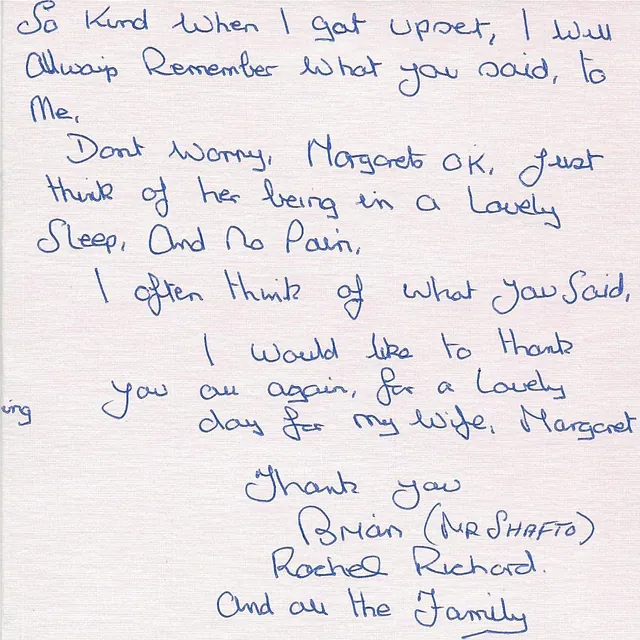 So Kind When I got upset, I Will
Allways Remember What you said, to
Me,
Dont worry, Margarets OK, Just
think of her being in a Lovely
Sleep, And No Pain,
I often think of what you said,
I would like to thank
you all again, for a Lovely
ing
day for my wife, Margaret
Thank you
Brian (MR SHAFTO)
Rachel Richard.
And all the Family